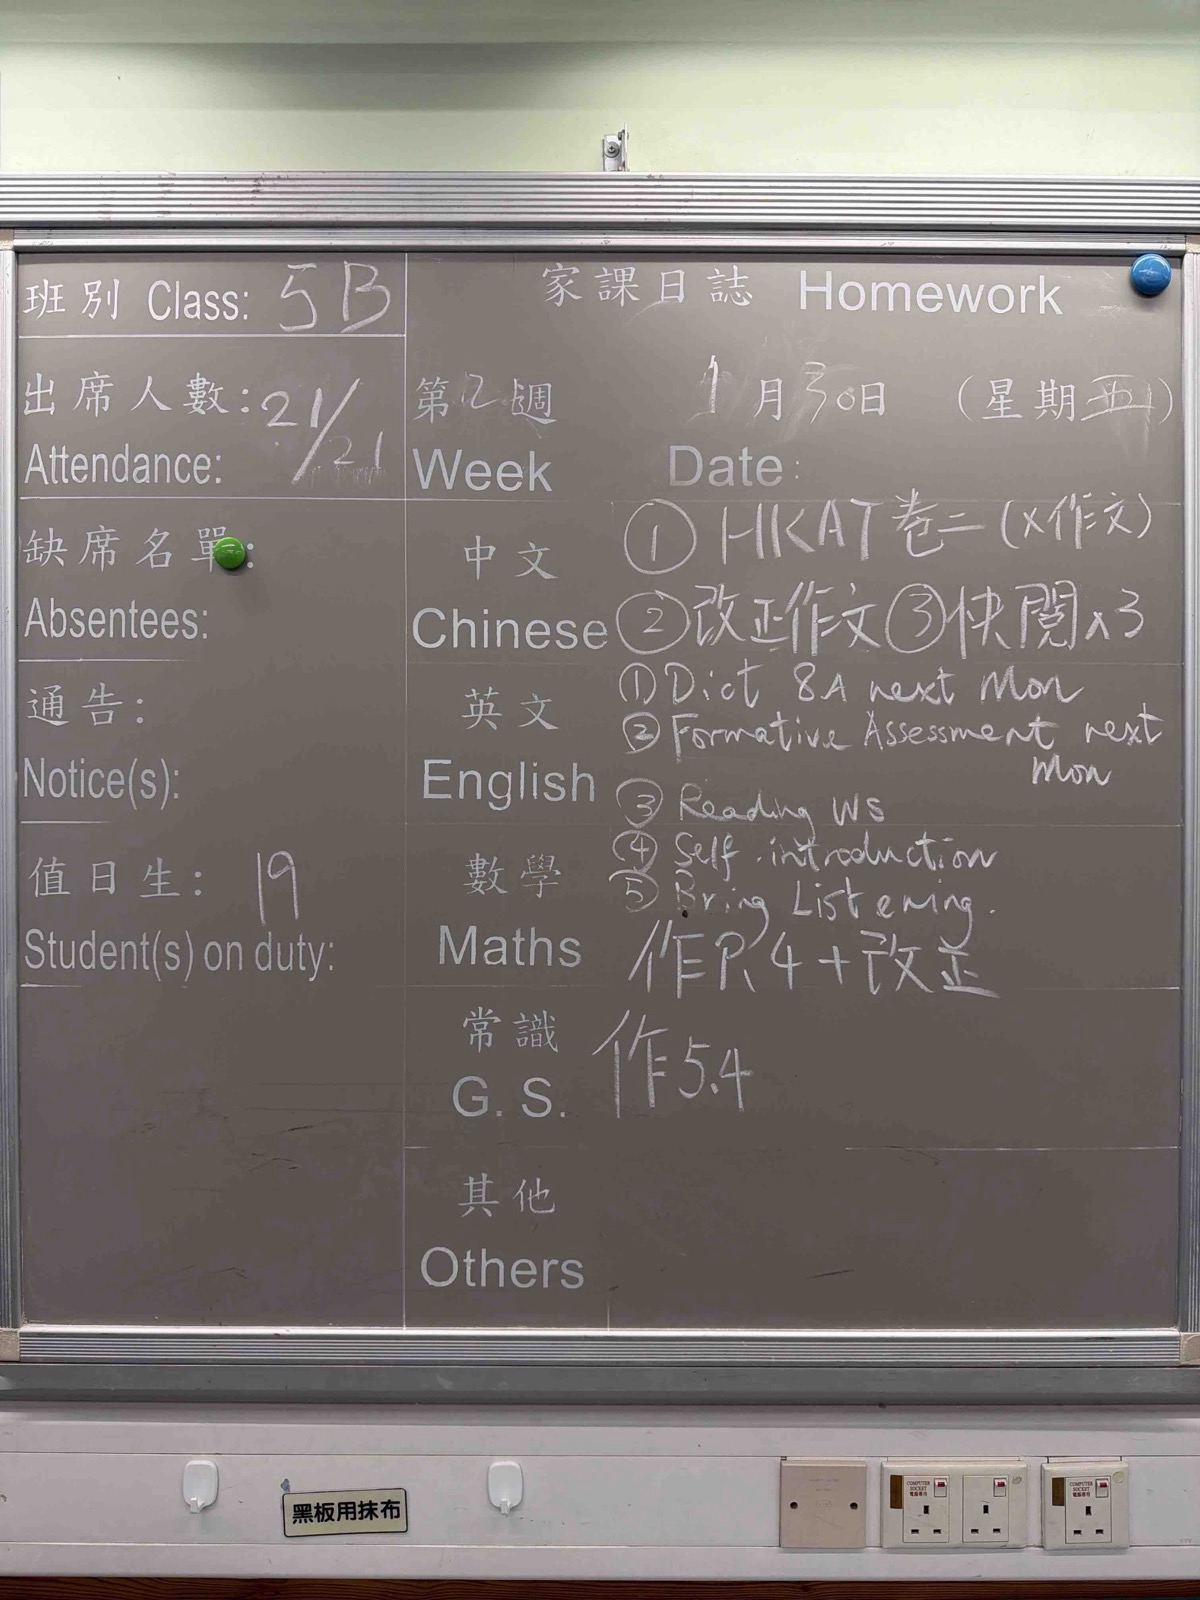 班別 Class: 5B
出席人數: 21/21
Attendance:
缺席名單:
Absentees:
通告:
Notice(s):
值日生: 19
Student(s) on duty:
家課日誌 Homework
第2週 1月30日 (星期五)
Week Date:
中文
Chinese
① HKAT 卷二 (x作文)
② 改正作文 ③ 快閱x3
英文
English
① Dict 8A next Mon
② Formative Assessment next
Mon
③ Reading WS
④ Self introduction
⑤ Bring Listening.
數學
Maths
作P.4+改正
常識
G. S.
作5.4
其他
Others
黑板用抹布
COMPUTER
SOCKET
電腦專用
COMPUTER
SOCKET
電腦專用